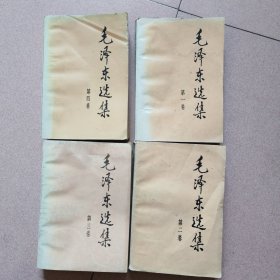 毛泽东选集
第四卷
毛泽东选集
第一卷
毛泽东选集
第三卷
毛泽东选集
第二卷